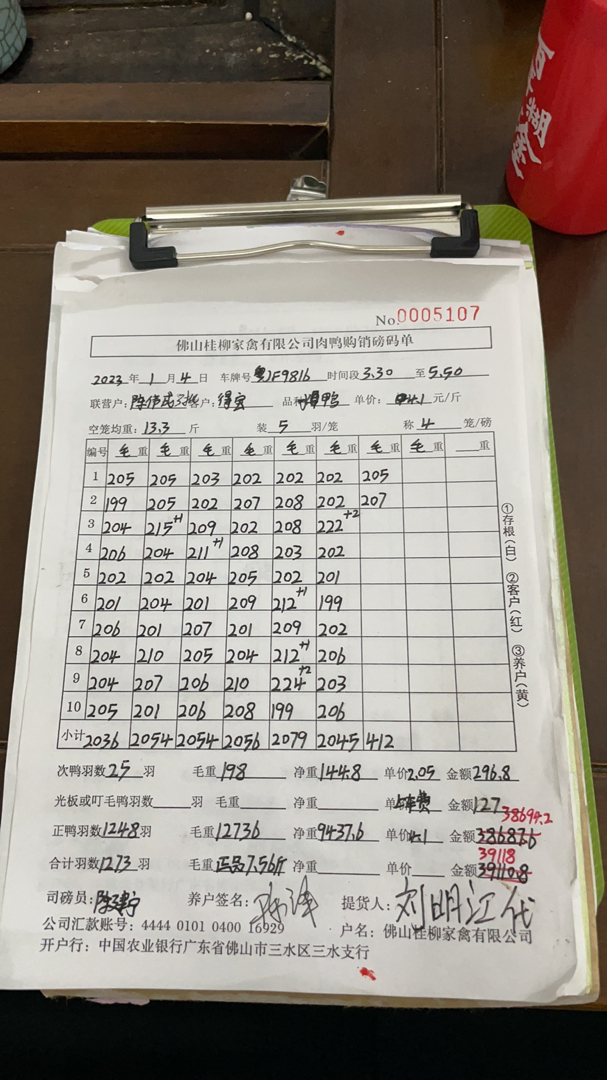 No.0005107
佛山桂柳家禽有限公司肉鸭购销磅码单
2023年1月4日 车牌号 粤JF9816 时间段 3.30 至 5.50
联营户: 客户: 得宏 品种 鸭 单价: 4.1 元/斤
空笼均重: 13.3 斤 装 5 羽/笼 称 4 笼/磅
编号 毛重 毛重 毛重 毛重 毛重 毛重 毛重 毛重 重
1 205 205 203 202 202 202 205
2 199 205 202 207 208 202 207
3 204 215+1 209 202 208 222+2
4 206 204 211+1 208 203 202
5 202 202 204 205 202 201
6 201 204 201 209 212+1 199
7 206 201 207 201 209 202
8 204 210 205 204 212+1 206
9 204 207 206 210 224+2 203
10 205 201 206 208 199 206
小计 2036 2054 2054 2056 2079 2045 412
①存根(白) ②客户(红) ③养户(黄)
次鸭羽数 25 羽 毛重 198 净重 144.8 单价 2.05 金额 296.8
光板或叮毛鸭羽数 羽 毛重 净重 单 车费 金额 127
38694.2
正鸭羽数 1248 羽 毛重 12736 净重 9437.6 单价 4.1 金额 38687.6
39118
合计羽数 1273 羽 毛重 正品7.56斤 净重 单价 金额 39110.8
司磅员: 养户签名: 提货人: 刘明江代
公司汇款账号: 4444 0101 0400 16929 户名: 佛山桂柳家禽有限公司
开户行: 中国农业银行广东省佛山市三水区三水支行